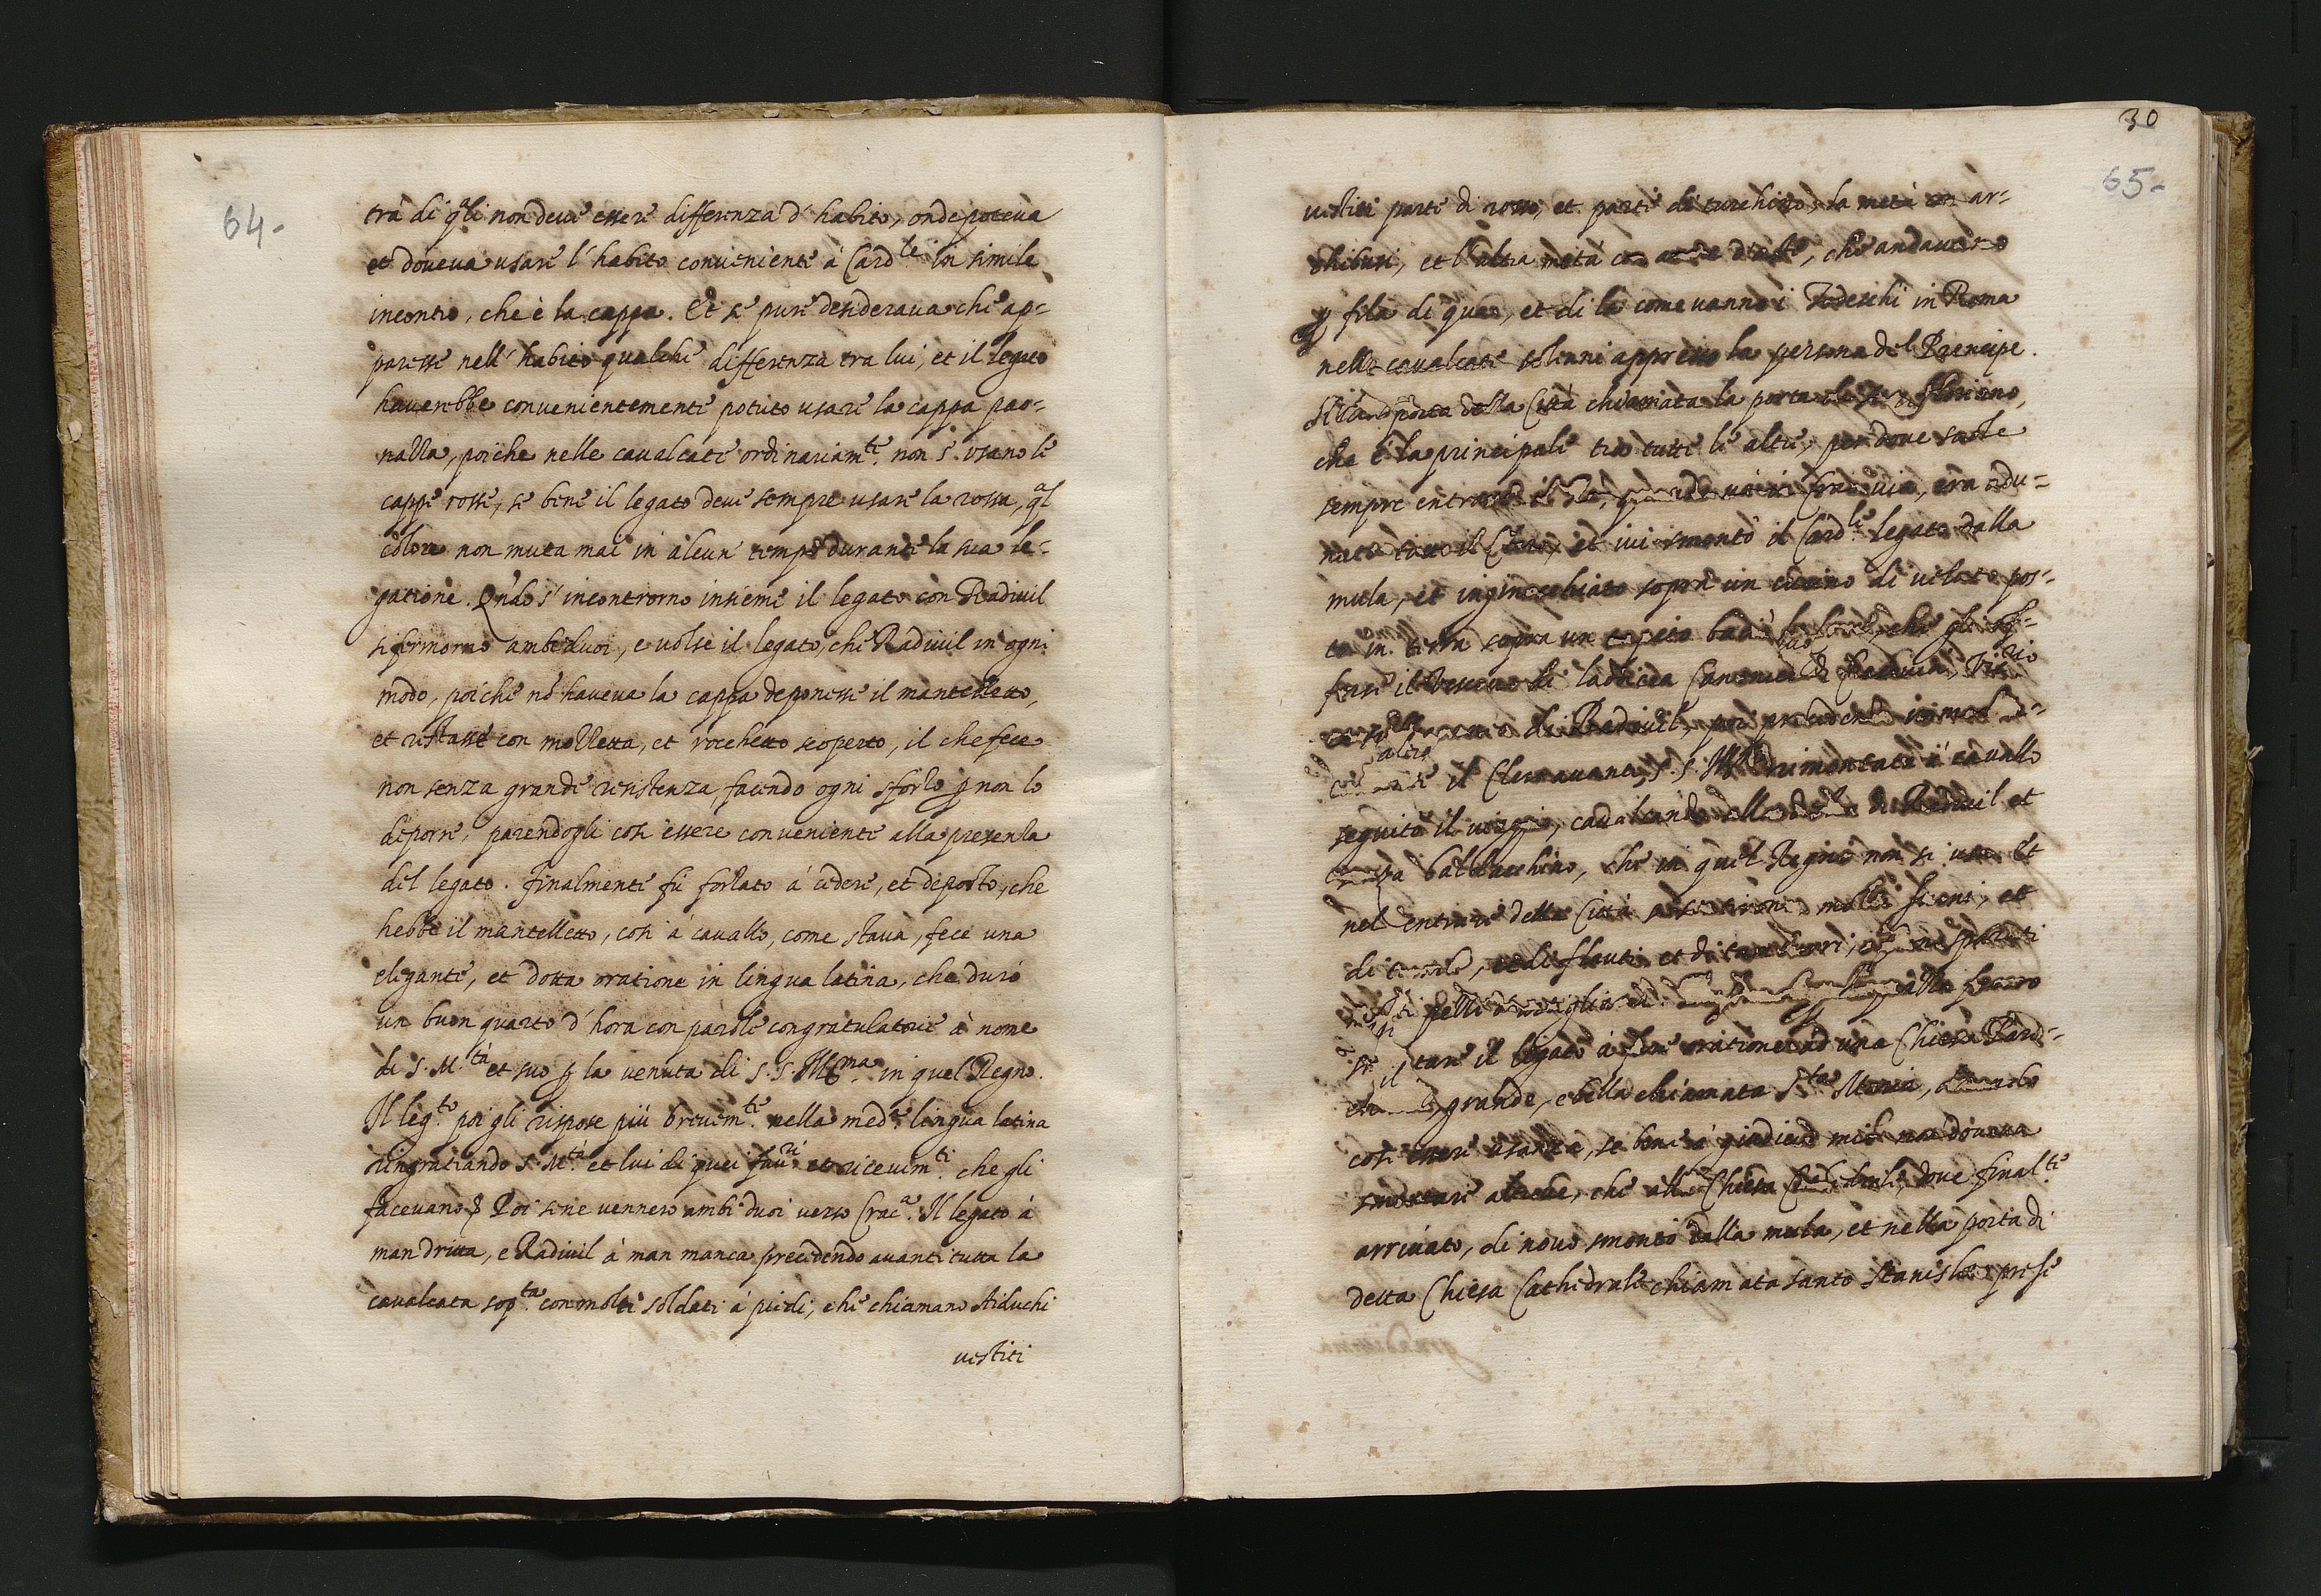 64-
trà di q̃li non deve essere differenza d'habito, onde poteva
et doveva usare l'habito conveniente à Card.le in simile
incontro, che è la cappa. Et se pure desiderava che ap=
paresse nell'habito qualche differenza tra lui, et il legato
haverebbe convenientemente potuto usare la cappa pao=
nazza, poiche nelle cavalcate ordinariam.te non s'usano le
cappe rosse, se bene il legato deve sempre usare la rossa, q̃l
colore non muta mai in alcun tempo durante la sua le=
gatione. Qñdo s'incontrorno insieme il legato con Radivil
si fermorno ambedvoi, e volse il legato, che Radivil in ogni
modo, poiche nõ haveva la cappa deponesse il mantelletto,
et restasse con mozzetta, et rocchetto scoperto, il che fece
non senza grande resistenza, facendo ogni sforzo p non lo
deporre, parendogli cosi essere conveniente alla presenza
del legato. Finalmente fù forzato à cedere, et deposto, che
hebbe il mantelletto, cosi à cavallo, come stava, fece una
elegante, et dotta oratione in lingua latina, che durò
un buon quarto d'hora con parole congratulatorie à nome
di S. M.tà et suo p la venuta di S. S. Ill.ma in quel Regno.
Il leg.to poi gli rispose più brevem.te nella med.a lingua latina
ringratiando S. M.tà et lui di quei fau.ri et ricevim.ti che gli
facevano Poi se ne vennero ambi dvoi verso Crac.a Il legato à
man dritta, e Radivil à man manca precedendo avanti tutta la
cavalcata sop.ta con molti soldati à piedi, che chiamano Aiduchi
vestiti
30
65-
vestiti parte di rosso, et parte di turchino, la metà con ar=
chibusi, et l'altra metà con d'aste, che andavano
p fila di qua, et di là come vanno i Todeschi in Roma
nelle cavalcate solenni appresso la persona del Prencipe.
porta della Città chiamata la porta di Sto Floriano,
che è la principale tra tutte le altre, per dove suole
sempre entrare il Rè, quando và in Cracovia, era adu=
nato tutto il Clero, et ivi smontò il Card.le legato dalla
mula, et inginocchiato sopra un cuscino di veluto pos=
to in terra sopra un tapeto baciò la Croce, che gli of=
ferse il Vescovo di laodicea Canonico di Cracovia,
di Radivil, poi precedendo
il Clero avanti, S. S. Ill.ma rimontata à cavallo
seguitò il viaggio, cavalcando di Radivil et
senza baldacchino, che in quel Regno non si usa. Et
nel entrare della Città si sentirono molti suoni, et
di trombe, et di flauti, et di tamburri,
pezzi d'artiglieria. allo sparo
il legato à fare oratione ad una Chiesa
grande, e bella chiamata S.ta Maria,
cosi essere usanza, se bene à giudicio mio non doveva
smontare altrove, che alla Chiesa Cathedrale, dove final.te
arrivato, di novo smontò dalla mula, et nella porta di
detta Chiesa Cathedrale chiamata santo Stanislao prese